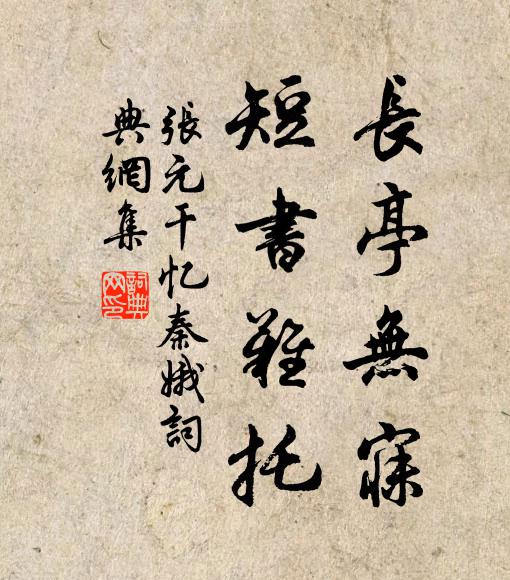 長亭無寐
短書難托
張元干忆秦娥詞
典網集
詞典網印